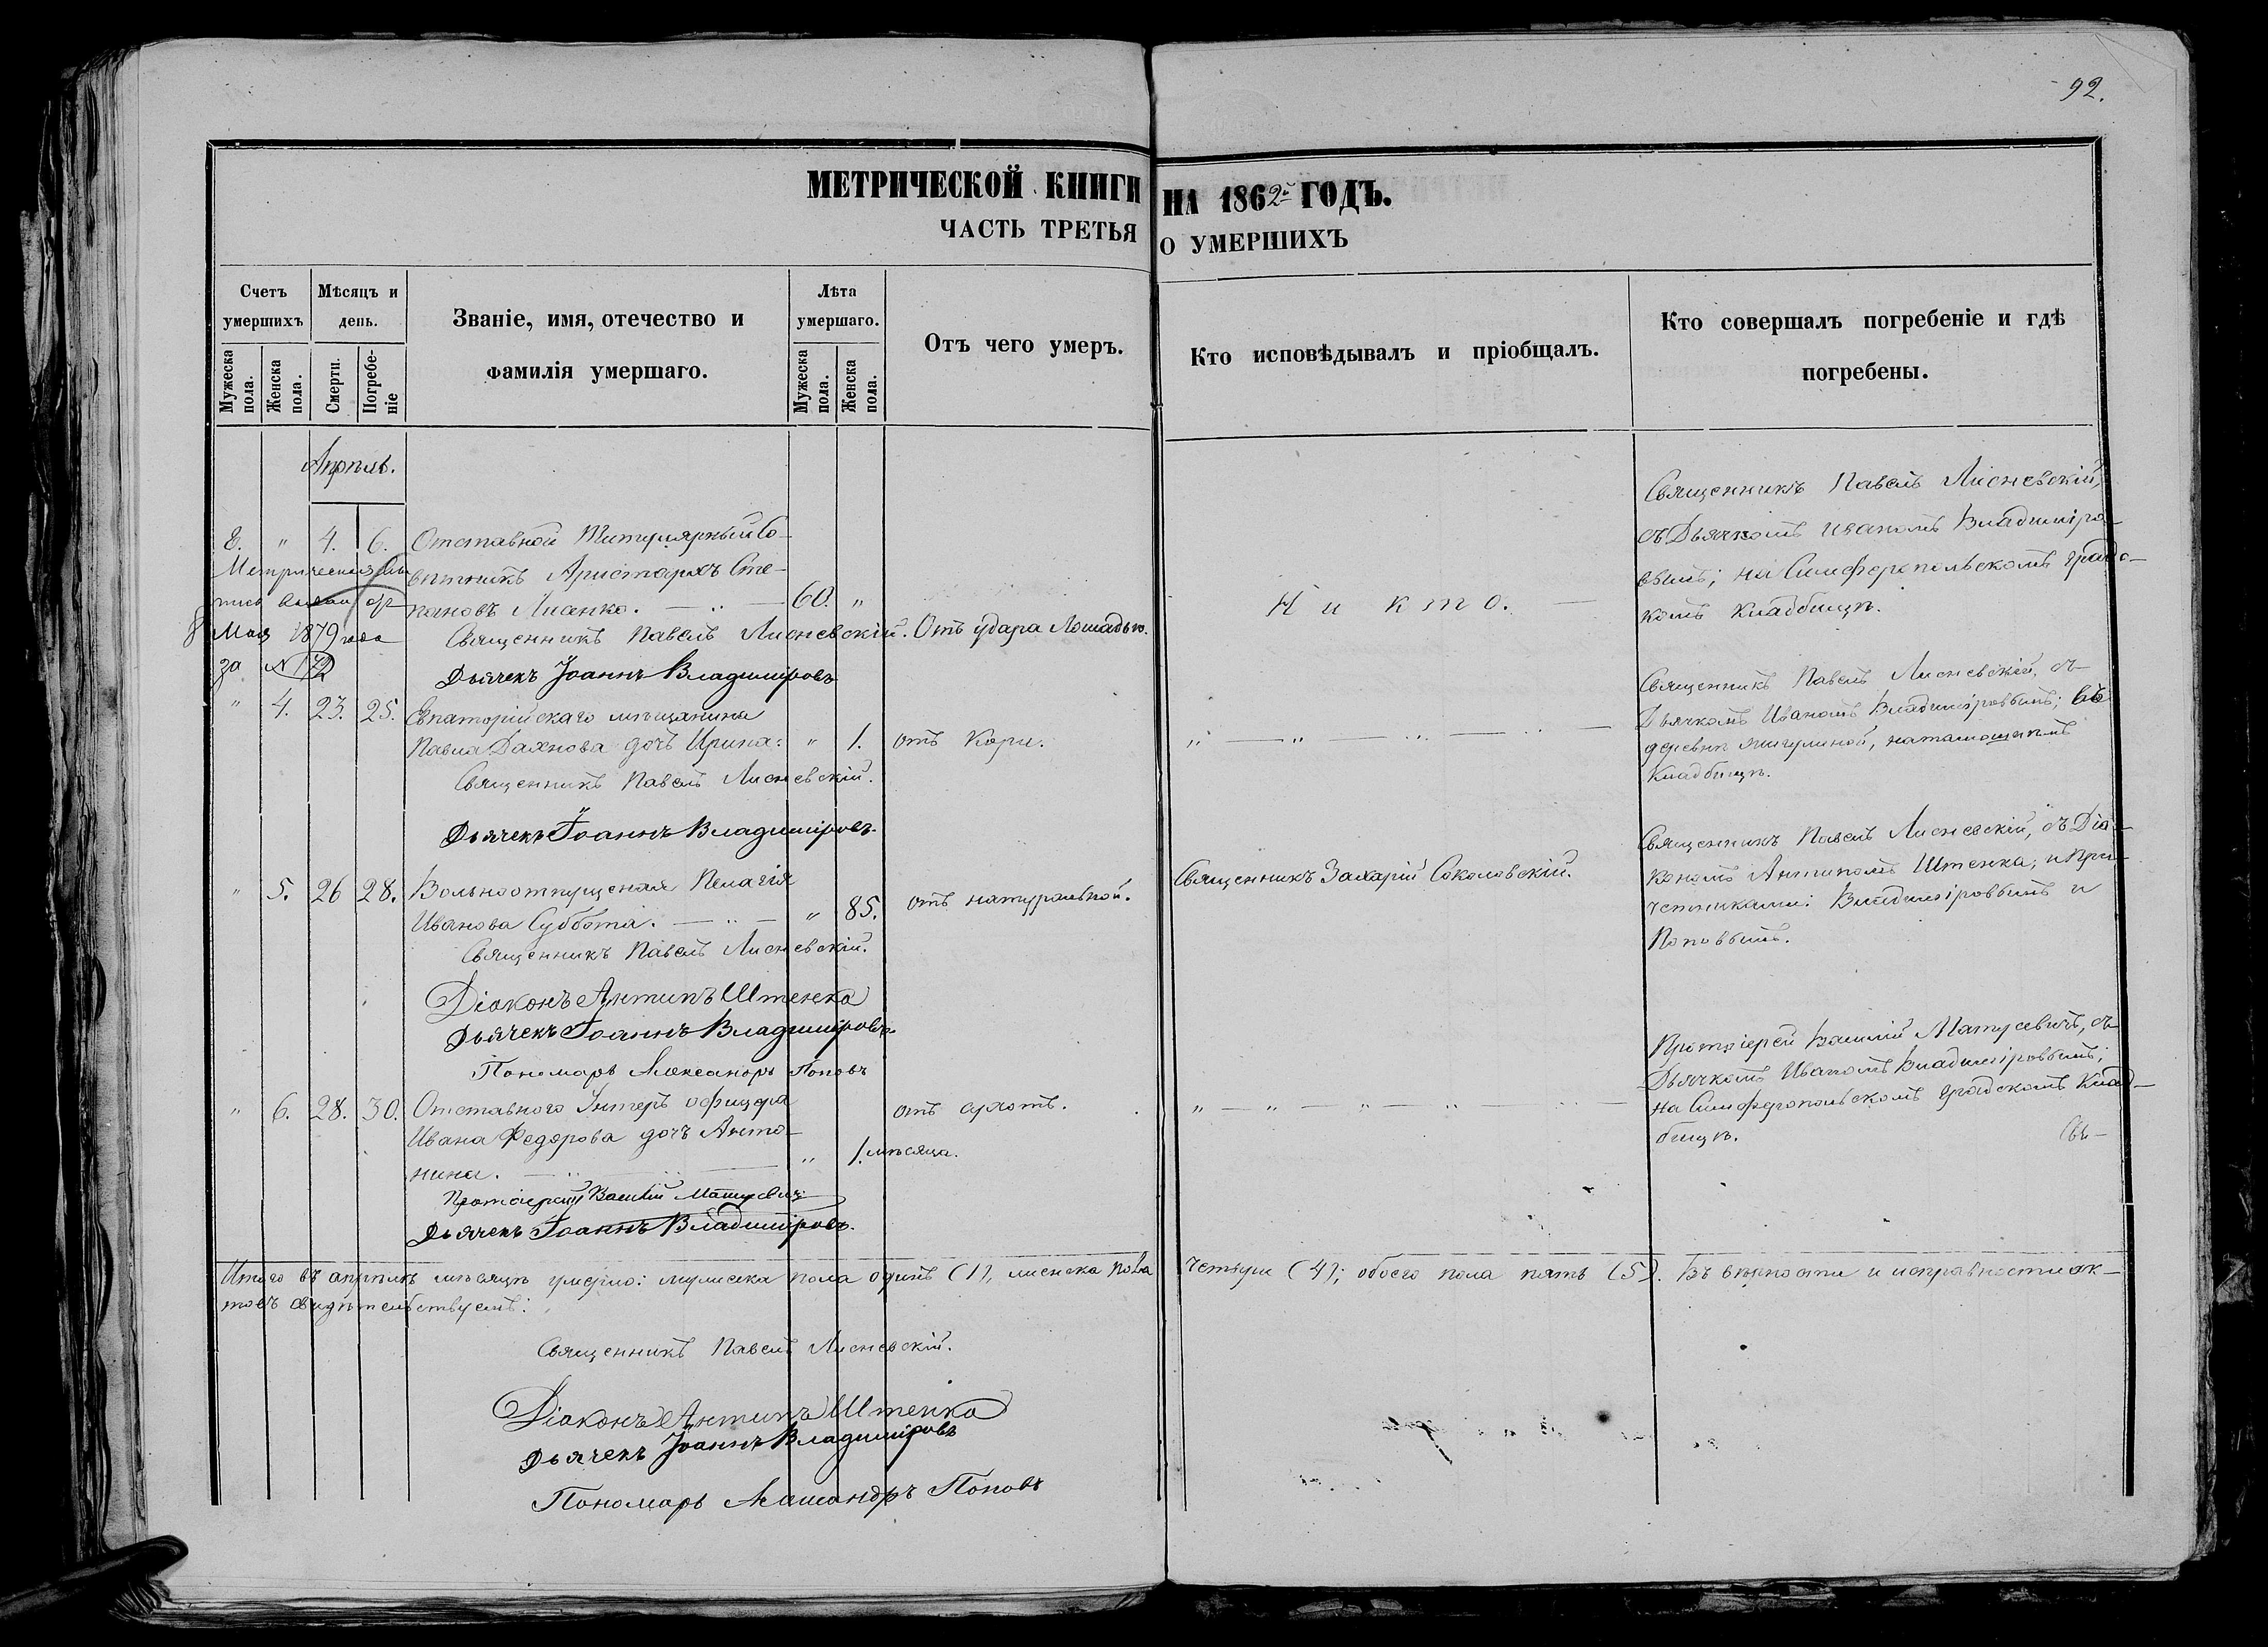 92.
МЕТРИЧЕСКОЙ КНИГИ НА 1862й ГОДЪ.
ЧАСТЬ ТРЕТЬЯ О УМЕРШИХЪ
Счетъ умершихъ
Мужеска пола.
Женска пола.
Мѣсяцъ и день.
Смерти.
Погребеніе
Званіе, имя, отечество и фамилія умершаго.
Лѣта умершаго.
Мужеска пола.
Женска пола.
Отъ чего умеръ.
Кто исповѣдывалъ и пріобщалъ.
Кто совершалъ погребеніе и гдѣ погребены.
Апрѣль.
8. " 4. 6. Отставной Титулярный Со-
вѣтникъ Аристархъ Сте-
пановъ Лианко. 60. "
Отъ удара Лошадью.
Никто.
Священникъ Павелъ Лисневскій,
съ Дьячкомъ Иваномъ Владиміро-
вымъ; на Симферопольскомъ градс-
комъ кладбищѣ.
Метрическая Вы
пись выдан
8 Мая 1879 года
за N 172
Священникъ Павелъ Лисневскій.
Дьячекъ Іоаннъ Владиміровъ
" 4. 23. 25. Евпаторійскаго мѣщанина
Павла Дахнова дочь Ирина: " 1. отъ Кори.
Священникъ Павелъ Лисневскій, съ
Дьячкомъ Иваномъ Владиміровымъ; въ
деревнѣ , на тамошнемъ
Кладбищѣ.
Священникъ Павелъ Лисневскій.
Дьячекъ Іоаннъ Владиміровъ
" 5. 26 28. Вольноотпущеная Пелагія
Иванова Суббота. " 85. отъ натуральной.
Священникъ Захарій Соколовскій.
Священникъ Павелъ Лисневскій, съ Діа-
кономъ Антипомъ Штенка; и При-
четниками: Владиміровымъ и
Поповымъ.
Священникъ Павелъ Лисневскій.
Діаконъ Антипъ Штенка
Дьячекъ Іоаннъ Владиміровъ
Пономарь Александръ Поповъ
" 6. 28. 30. Отставного Унтеръ офицера
Ивана Федорова дочь Анто-
нина. " 1. мѣсяца.
отъ сухотъ.
Протоіерей Василій Матусевичъ, съ
Дьячкомъ Иваномъ Владиміровымъ;
на Симферопольскомъ градскомъ Клад-
бищѣ.
Протоіерей Василій Матусевичъ
Дьячекъ Іоаннъ Владиміровъ.
Итого въ апрѣлѣ мѣсяцѣ умерло: мужеска пола одинъ (1), женска пола четыре (4); обоего пола пять (5). Въ вѣрности и исправности ак-
товъ свидѣтельствуемъ:
Священникъ Павелъ Лисневскій.
Діаконъ Антипъ Штенка
Дьячекъ Іоаннъ Владиміровъ
Пономарь Александръ Поповъ